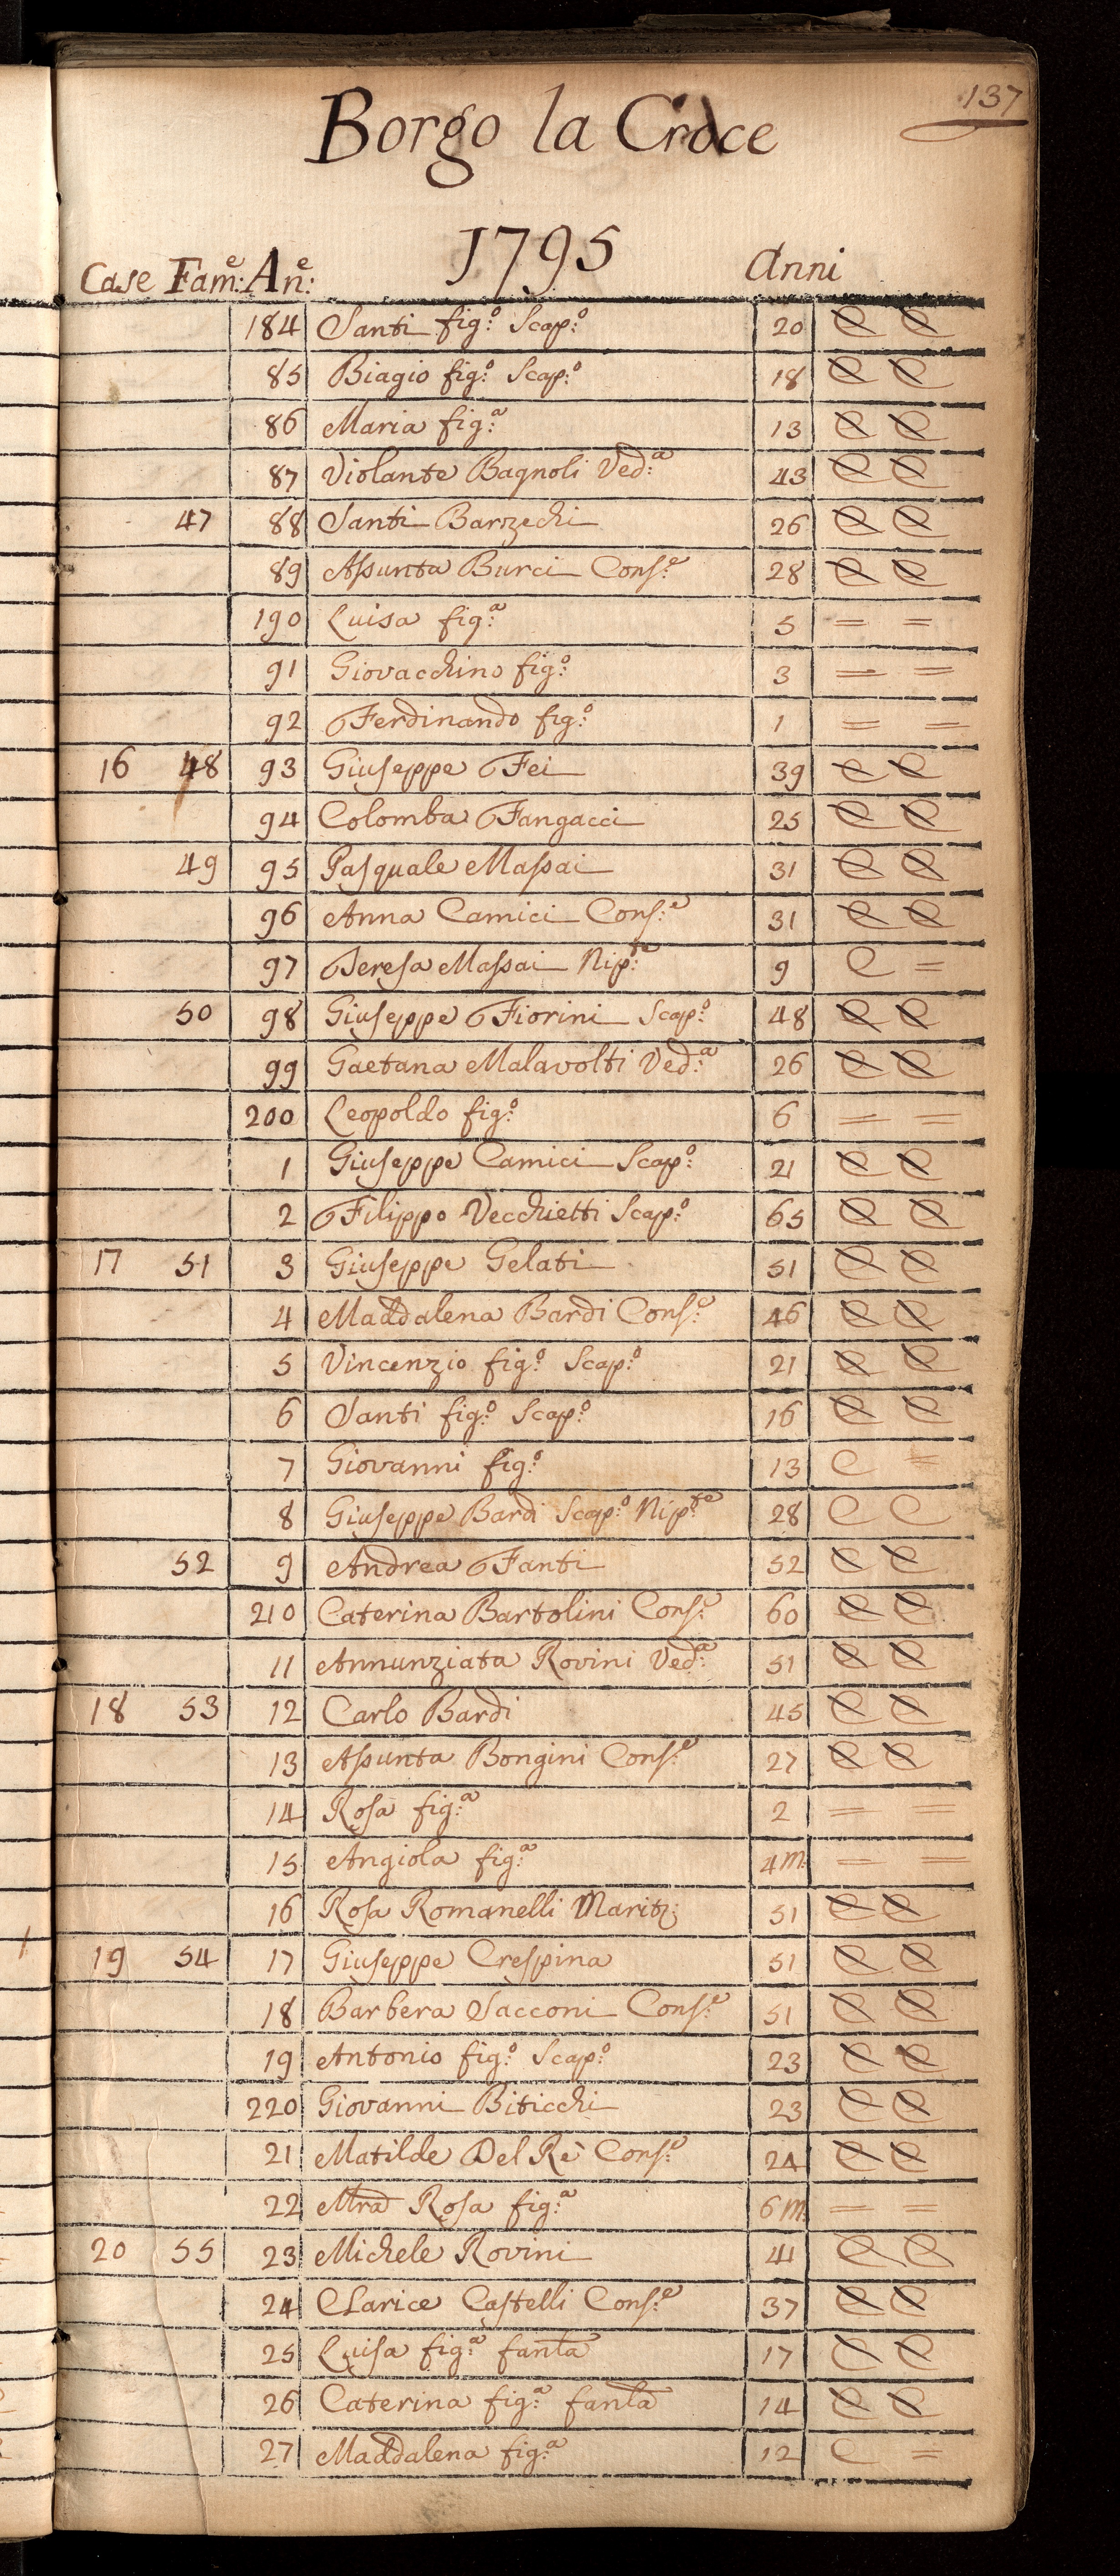 137
Borgo la Croce
1795
Case Fam:e An:e Anni
184 Santi fig:o Scap:o 20 C C
85 Biagio fig:o Scap:o 18 C C
86 Maria fig:a 13 C C
87 Violante Bagnoli Ved:a 43 C C
47 88 Santi Barzechi 26 C C
89 Aſsunta Burci Conſ:e 28 C C
190 Luisa fig:a 5 = =
91 Giovacchino fig:o 3 = =
92 Ferdinando fig:o 1 = =
16 48 93 Giuſeppe Fei 39 C C
94 Colomba Fangacci 25 C C
49 95 Paſquale Maſsai 31 C C
96 Anna Camici Conſ:e 31 C C
97 Tereſa Maſsai Nip:te 9 C =
50 98 Giuſeppe Fiorini Scap:o 48 C C
99 Gaetana Malavolti Ved:a 26 C C
200 Leopoldo fig:o 6 = =
1 Giuſeppe Camici Scap:o 21 C C
2 Filippo Vecchietti Scap:o 65 C C
17 51 3 Giuſeppe Gelati 51 C C
4 Maddalena Bardi Conſ:e 46 C C
5 Vincenzio fig:o Scap:o 21 C C
6 Santi fig:o Scap:o 16 C C
7 Giovanni fig:o 13 C =
8 Giuſeppe Bardi Scap:o Nip:te 28 C C
52 9 Andrea Fanti 52 C C
210 Caterina Bartolini Conſ:e 60 C C
11 Annunziata Rovini Ved:a 51 C C
18 53 12 Carlo Bardi 45 C C
13 Aſsunta Bongini Conſ:e 27 C C
14 Roſa fig:a 2 = =
15 Angiola fig:a 4 m. = =
16 Roſa Romanelli Marit: 51 C C
19 54 17 Giuſeppe Creſpina 51 C C
18 Barbera Sacconi Conſ:e 51 C C
19 Antonio fig:o Scap:o 23 C C
220 Giovanni Biticchi 23 C C
21 Matilde Del Rè Conſ:e 24 C C
22 Mra Roſa fig:a 6 m. = =
20 55 23 Michele Rovini 41 C C
24 Clarice Caſtelli Conſ:e 37 C C
25 Luiſa fig:a fanla 17 C C
26 Caterina fig:a fanla 14 C C
27 Maddalena fig:a 12 C =